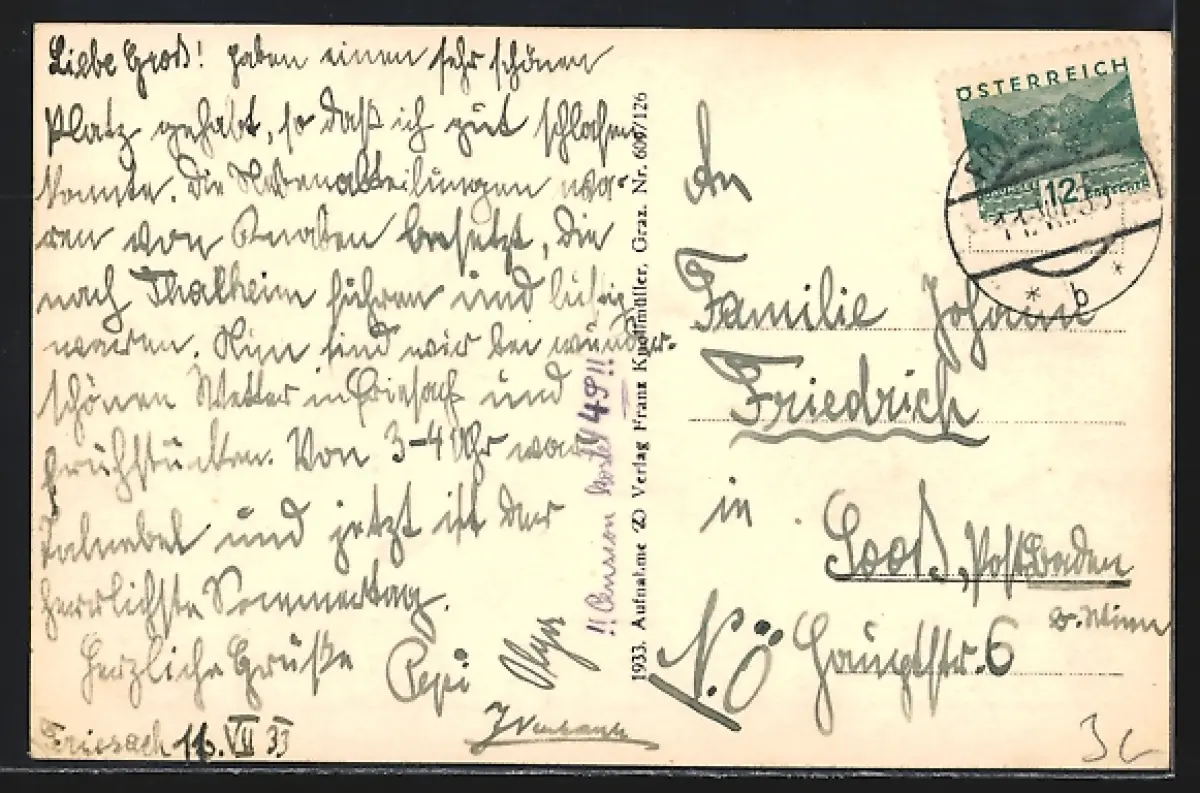 Liebe Groß! haben einen sehr schönen
Platz gehabt, so daß ich gut schlafen
konnte. Die Nebenabteilungen wa-
ren von Knaben besetzt, die
nach Thalheim fuhren und lustig
waren. Nun sind wir bei wunder-
schönen Wetter in Friesach und
frühstücken. Von 3-4 Uhr war
Talnebel und jetzt ist der
herrlichste Sommertag.
Herzliche Grüße Pepi
Friesach 11. VII 33
!! Pension kostet 4 S!!
1933. Aufnahme Verlag Franz Knollmüller, Graz. Nr. 600/126
ÖSTERREICH
12 GROSCHEN
11. VII. 33
* b *
An
Familie Johann
Friedrich
in
Sooß, Post Baden
b. Wien
N.Ö Hauptstr. 6